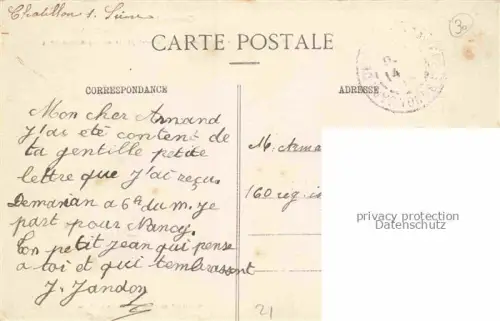 Chatillon s. Seine
30
CARTE POSTALE
CORRESPONDANCE
ADRESSE
Mon cher Armand
J'ai été content de
ta gentille petite
lettre que J'ai reçu.
Demanian a 6h du m. je
part pour Nancy.
Ton petit Jean qui pense
a toi et qui tembrassent
J. Jandon
M. Arma
160 reg. i
privacy protection
Datenschutz
21